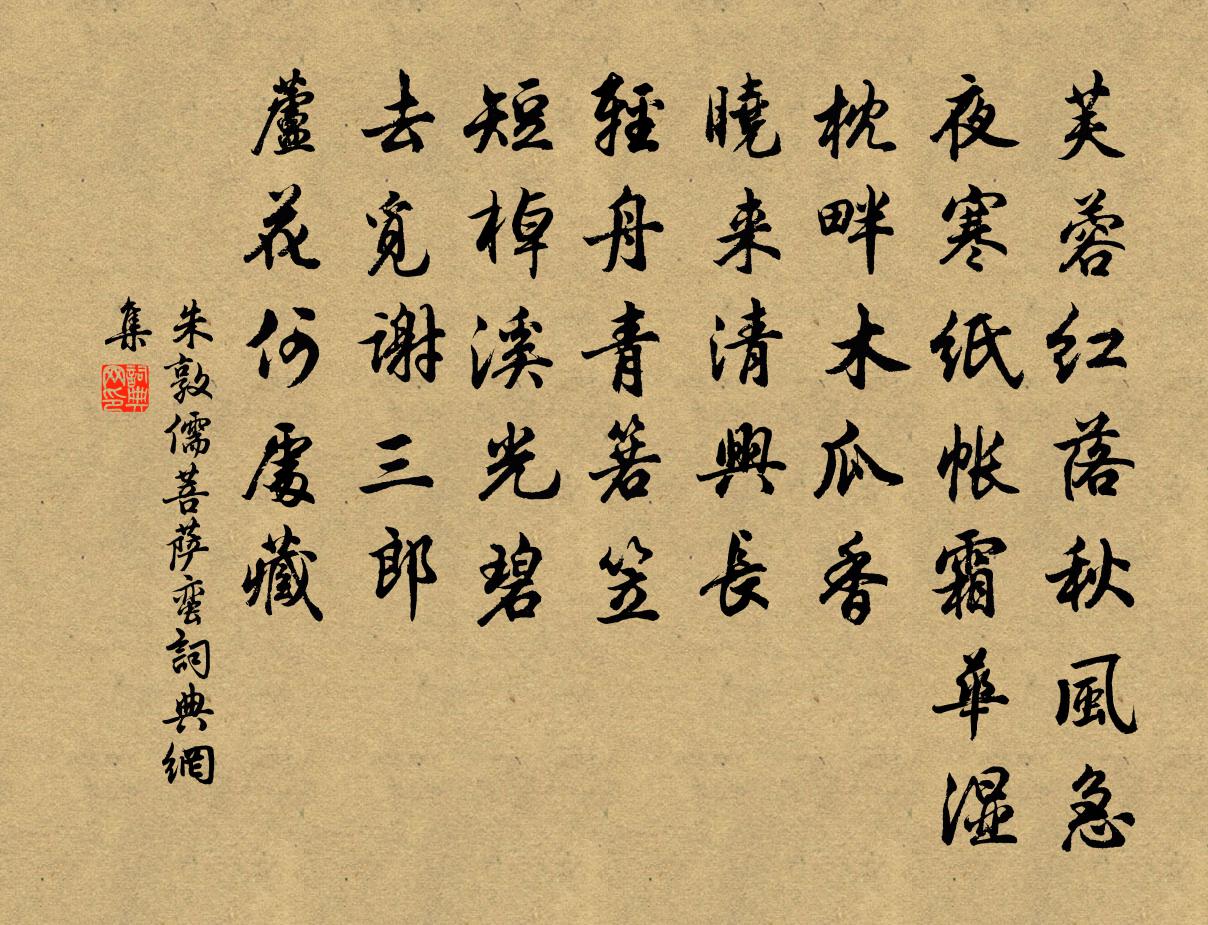 芙蓉红落秋風急
夜寒纸帐霜華湿
枕畔木瓜香
曉来清興長
輕舟青箬笠
短棹溪光碧
去覓謝三郎
蘆花何處藏
朱敦儒菩萨蛮詞典網
集
詞典
网印